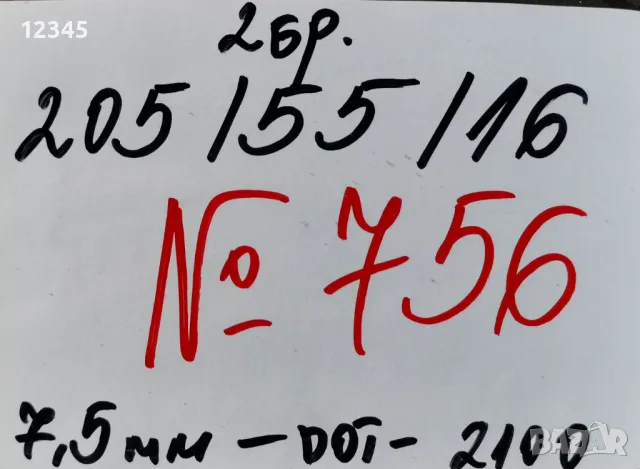 12345
2 бр.
205 /55 /16
№ 756
7,5 мм – DOT – 2100
BAZAR